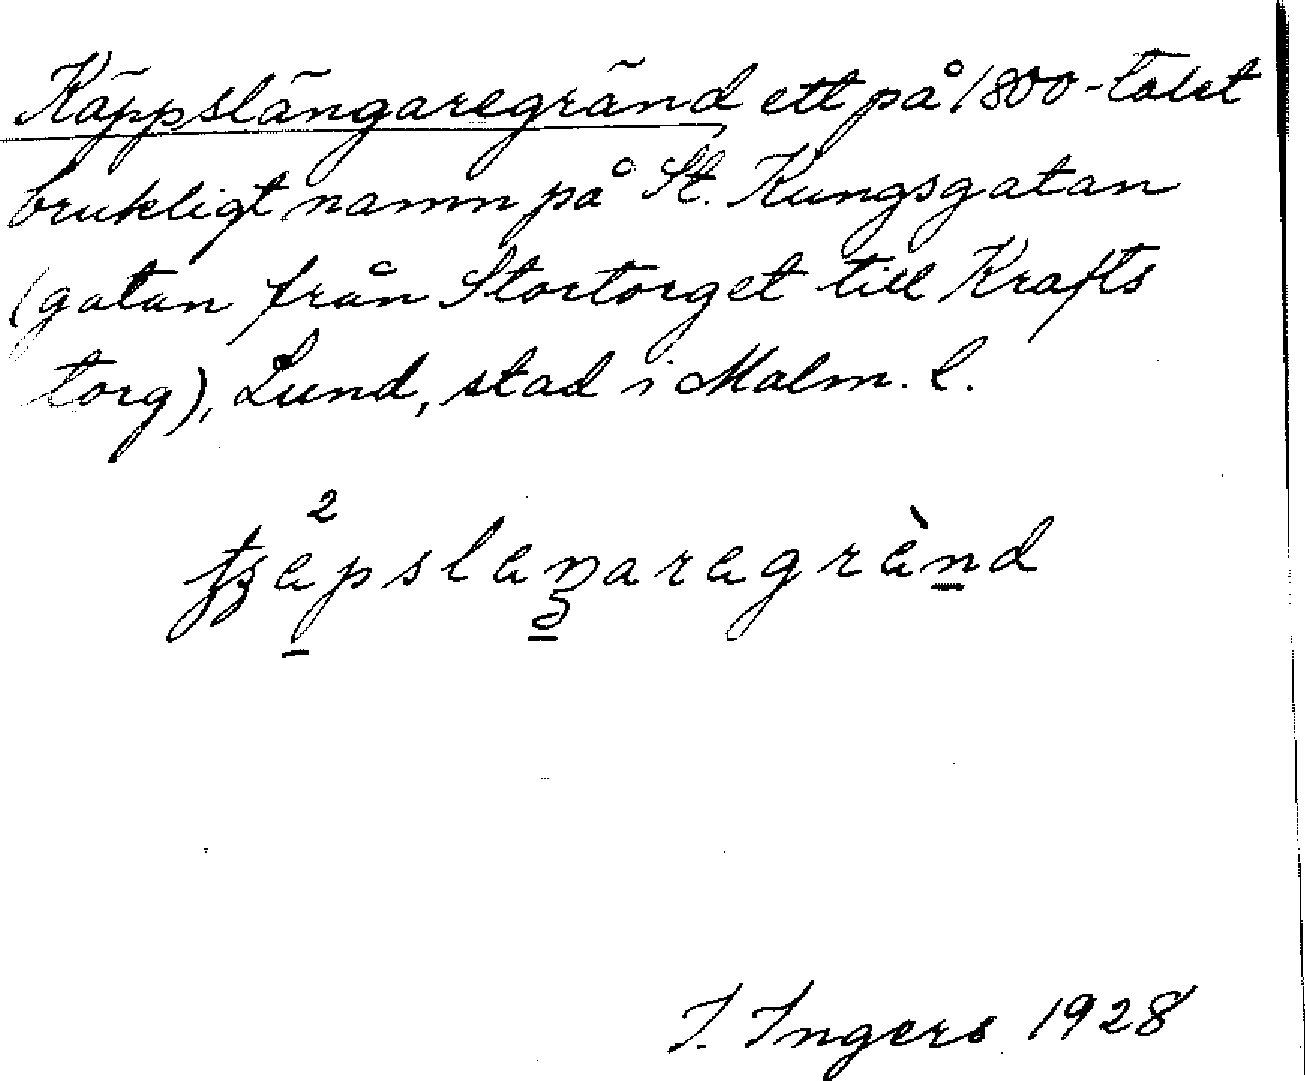 Käppslängaregränd ett på 1800-talet
brukligt namn på St. Kungsgatan
(gatan från Stortorget till Krafts
torg), Lund, stad i Malm. l.
I. Ingers 1928